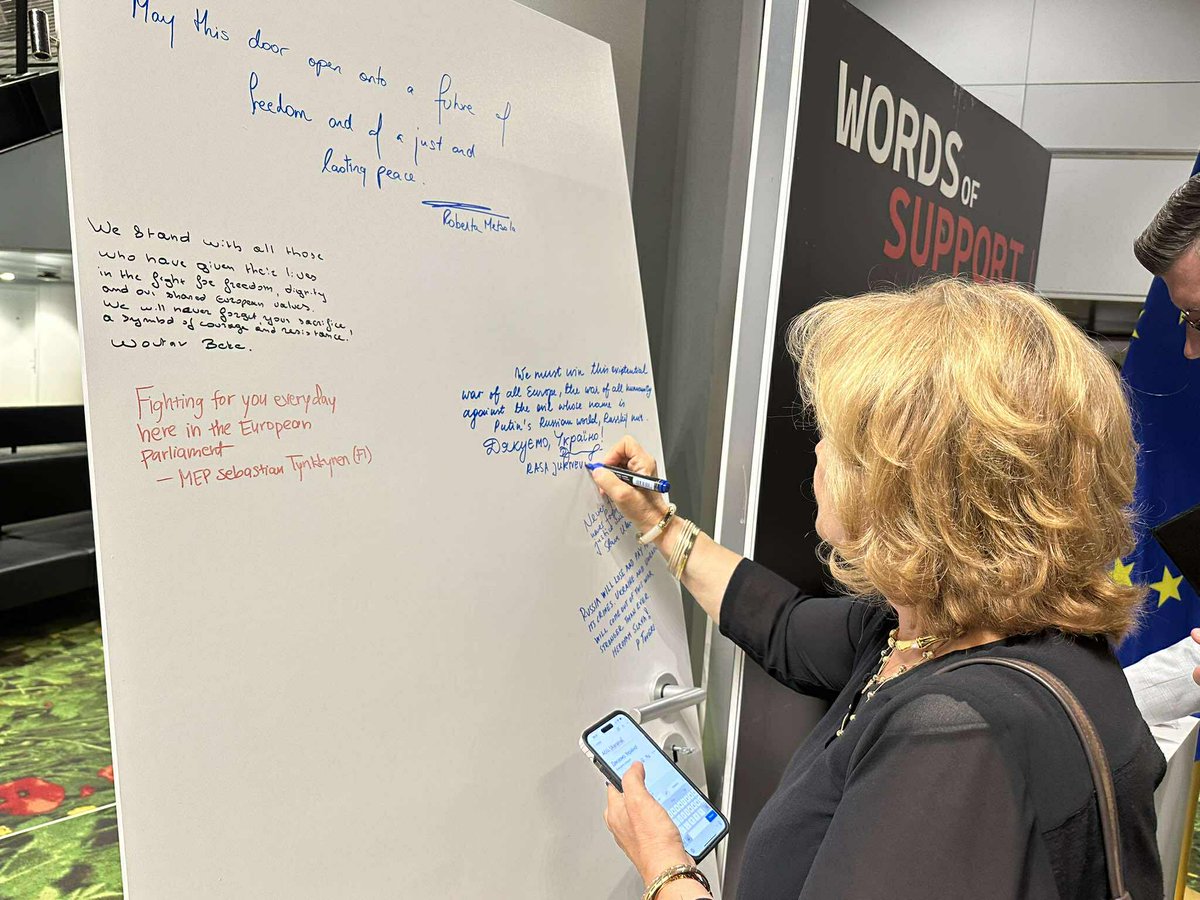 May this door open onto a future of
freedom and of a just and
lasting peace.
Roberta Metsola
We stand with all those
who have given their lives
in the fight for freedom, dignity
and our shared European values.
We will never forget your sacrifice,
a symbol of courage and resistance!
Fighting for you everyday
here in the European
Parliament
— MEP Sebastian Tynkkynen (FI)
We must win this existential
war of all Europe, the war of all humanity
against the one whose name is
Putin's Russian world, Russkij mir.
Дякуємо, Україно!
RASA Juknev
Never
RUSSIA WILL LOSE AND PAY
ITS CRIMES. UKRAINE AND
WILL COME OUT OF THIS WAR
STRONGER THAN EVER
HEROIAM SLAVA
WORDS OF
SUPPORT